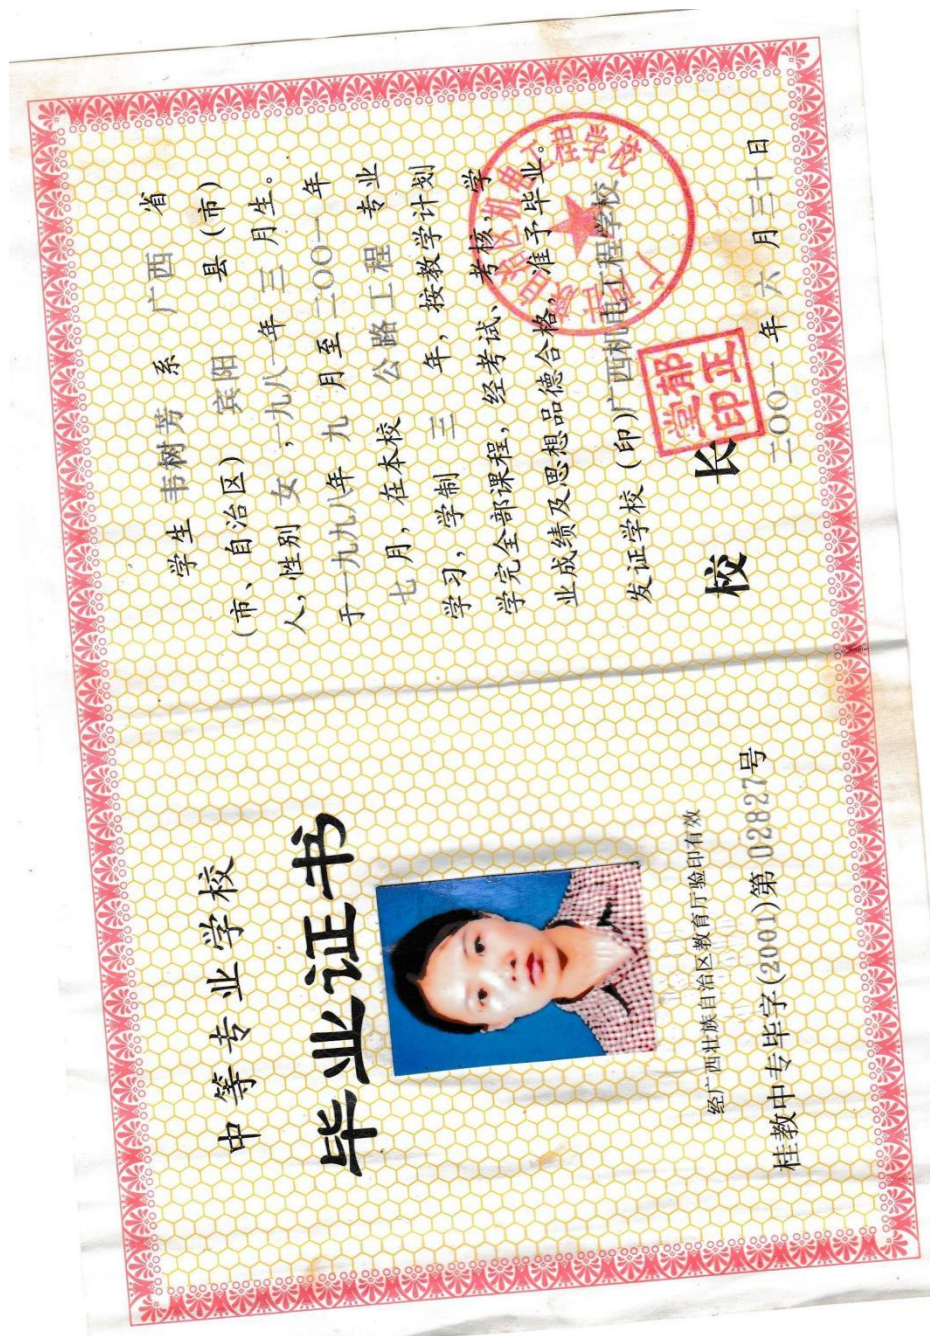 中等专业学校
毕业证书
经广西壮族自治区教育厅验印有效
桂教中专毕字(2001)第02827号
学生 韦树芳 系 广西 省
(市、自治区) 宾阳 县(市)
人,性别 女,一九八一年 三 月生。
于一九九八年 九 月至二00一年
七 月,在本校 公路工程 专业
学习,学制 三 年,按教学计划
学完全部课程,经考试、考核,学
业成绩及思想品德合格,准予毕业。
发证学校(印)广西机电工程学校
校长
二00一年 六 月三十日
广西壮族自治区机电工程学校